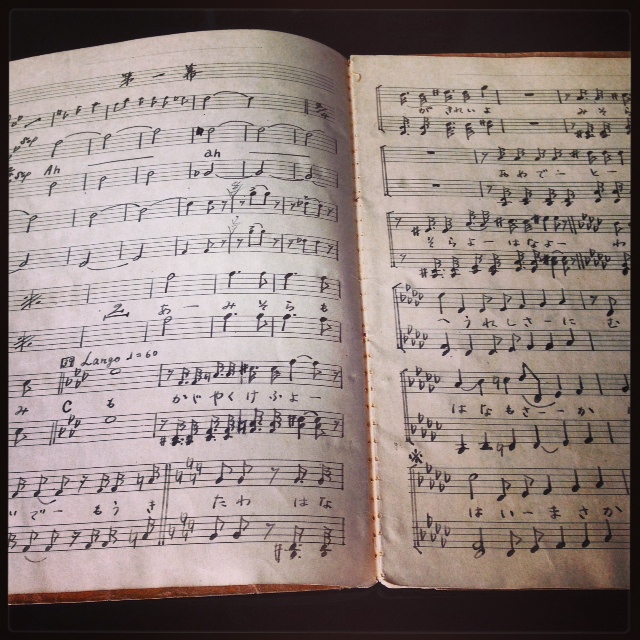 第一幕
Ah
ah
あーみそらも
Lango ♩=60
みても
かがやくけふよー
いでーもうき
たわはな
がきれいよ
みそ
あわでーとー
そらよーはなよー
わ
へうれしさーにむ
はなもさーか
はいーまさか